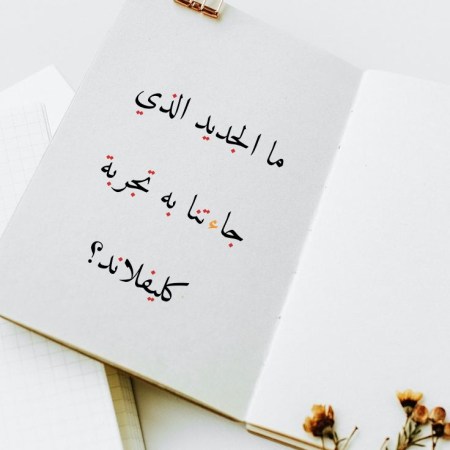 ما الجديد الذي
جاءتنا به تجربة
كليفلاند؟